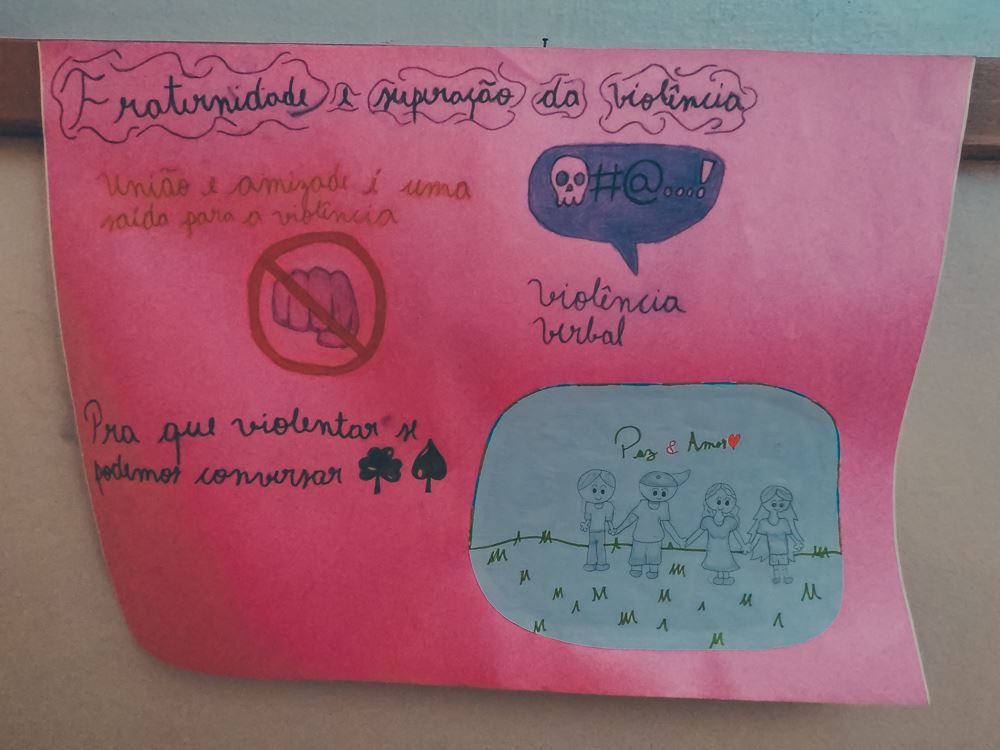 Fraternidade e superação da violência
União e amizade é uma
saída para a violência
#@...!
Violência
Verbal
Pra que violentar se
podemos conversar
Paz & Amor